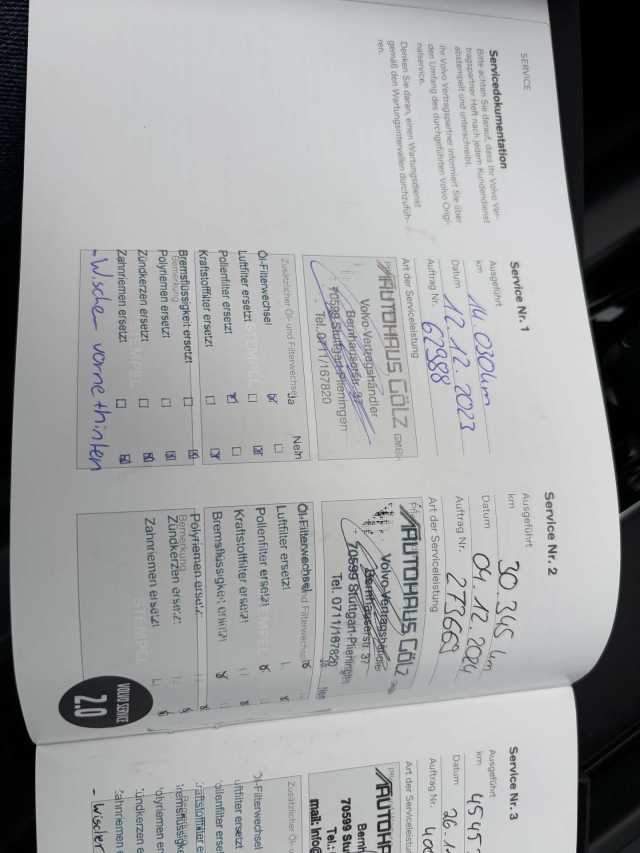 SERVICE
Servicedokumentation
Bitte achten Sie darauf, dass Ihr Volvo Ver-
tragspartner Heft nach jedem Kundendienst
abstempelt und unterschreibt.
Ihr Volvo Vertragspartner informiert Sie über
den Umfang des durchgeführten Volvo Origi-
nalservice.
Denken Sie daran, einen Wartungsdienst
gemäß den Wartungsintervallen durchzufüh-
ren.
Service Nr. 1
Ausgeführt
km 14.030km
Datum 12.12.2023
Auftrag Nr. 62988
Art der Serviceleistung
AUTOHAUS GÖLZ GMBH
Volvo-Vertragshändler
Bernhauserstr. 37
70599 Stuttgart-Plieningen
Tel. 0711/167820
Zusätzlicher Öl- und Filterwechsel
Ja Nein
Öl-Filterwechsel
Luftfilter ersetzt
Pollenfilter ersetzt
Kraftstofffilter ersetzt
Bremsflüssigkeit ersetzt
Bemerkung
Polyriemen ersetzt
Zündkerzen ersetzt
Zahnriemen ersetzt
- Wischer vorne + hinten
Service Nr. 2
Ausgeführt
km 30.345 km
Datum 04.12.2024
Auftrag Nr. 273669
Art der Serviceleistung
AUTOHAUS GÖLZ
Volvo-Vertragshändler
Bernhauserstr. 37
70599 Stuttgart-Plieningen
Tel. 0711/167820
Öl-Filterwechsel
Luftfilter ersetzt
Pollenfilter ersetzt
Kraftstofffilter ersetzt
Bremsflüssigkeit ersetzt
Polyriemen ersetzt
Bemerkung
Zündkerzen ersetzt
Zahnriemen ersetzt
VOLVO SERVICE
2.0
Service Nr. 3
Ausgeführt
km 4545
Datum 26.1
Auftrag Nr. 40
Art der Serviceleistung
AUTOHA
Bernh
70599 S
Tel.:
mail: info@
Zusätzlicher Öl- u
Öl-Filterwechsel
uftfilter ersetzt
ollenfilter ersetzt
raftstofffilter ers
remsflüssigke
olyriemen er
ündkerzen e
ahnriemen e
- Wischer